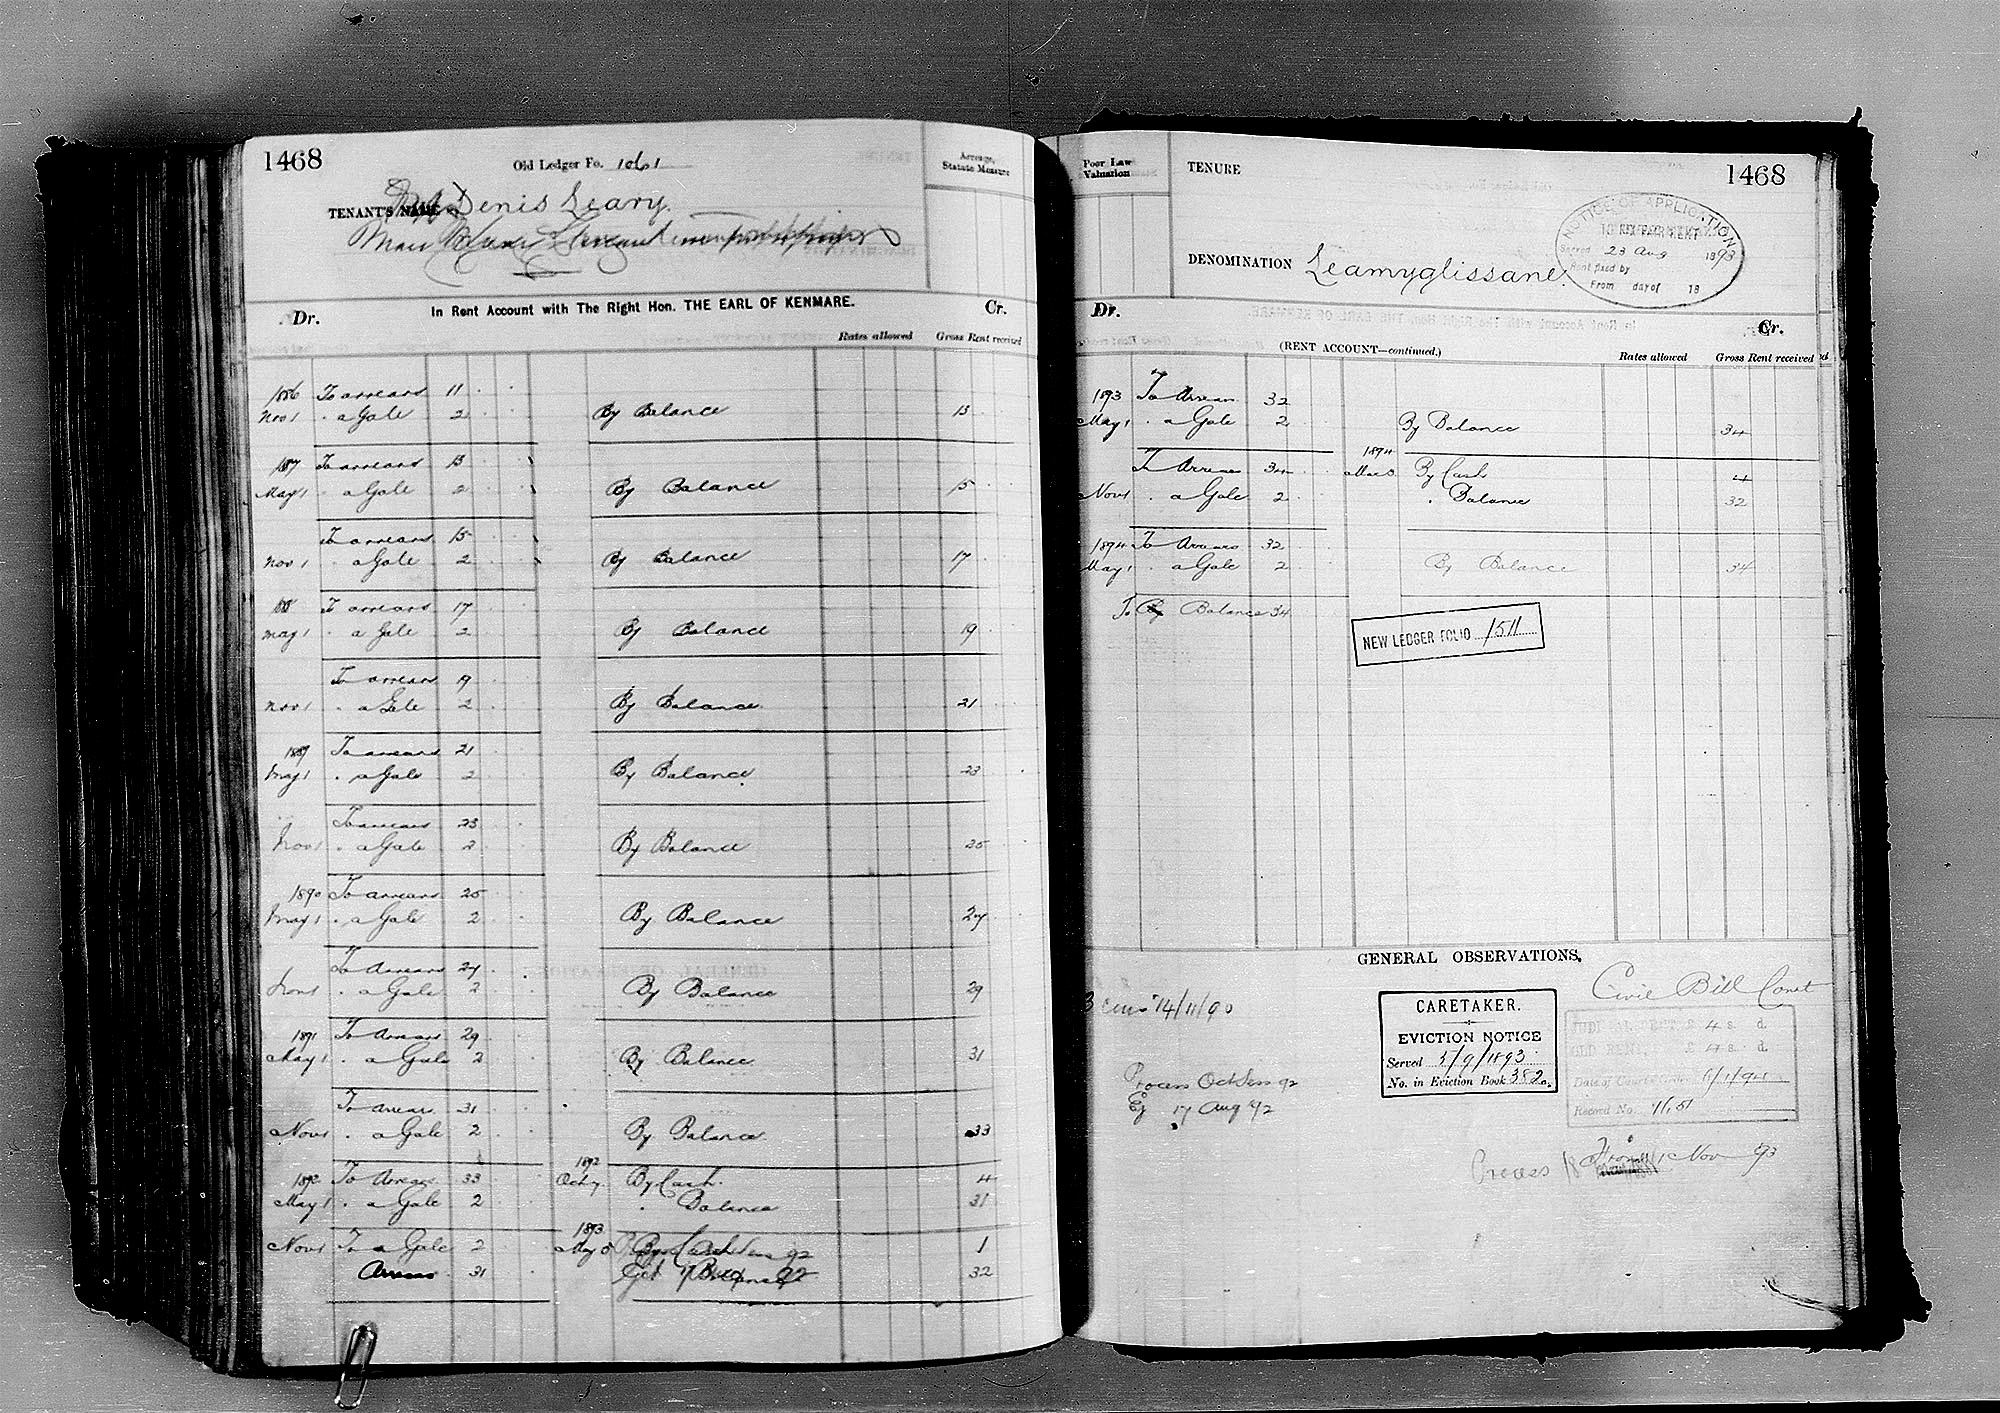 1468
Old Ledger Fo. 1061
Acreage, Statute Measure
TENANT'S NAME Denis Leary.
In Rent Account with The Right Hon. THE EARL OF KENMARE.
Dr. Cr.
Rates allowed Gross Rent received
1886 To arrears 11
Nov 1 . a Gale 2 By Balance 13
1887 To arrears 13
May 1 . a Gale 2 By Balance 15
To arrears 15
Nov 1 . a Gale 2 By Balance 17
188 To arrears 17
May 1 . a Gale 2 By Balance 19
To arrears 19
Nov 1 . a Gale 2 By Balance 21
1889 To arrears 21
May 1 . a Gale 2 By Balance 23
To arrears 23
Nov 1 . a Gale 2 By Balance 25
1890 To arrears 25
May 1 . a Gale 2 By Balance 27
To Arrears 27
Nov 1 . a Gale 2 By Balance 29
1891 To Arrears 29
May 1 . a Gale 2 By Balance 31
To Arrears 31
Nov 1 . a Gale 2 By Balance 33
1892 To Arrears 33 1892 Oct 7 By Cash 4
May 1 . a Gale 2 . Balance 31
Nov 1 To a Gale 2 1893 May 5 By Cash 1
Arrears 31 Balance 32
Poor Law Valuation
TENURE
1468
NOTICE OF APPLICATION
TO FIX FAIR RENT
Served 23 Aug 1893
Rent fixed by
From day of 18
DENOMINATION Leamyglissane.
Dr. Cr.
(RENT ACCOUNT—continued.)
Rates allowed Gross Rent received
1893 To Arrears 32
May 1 . a Gale 2 By Balance 34
To Arrears 34 1894 Mar 3 By Cash 4
Nov 1 . a Gale 2 . Balance 32
1894 To Arrears 32
May 1 . a Gale 2 By Balance 34
To Balance 34
NEW LEDGER FOLIO 1511
GENERAL OBSERVATIONS.
Civil Bill Court
14/11/90
CARETAKER.
EVICTION NOTICE
Served 5/9/1893
No. in Eviction Book 382.
JUDICIAL RENT, £ 4 s. d.
OLD RENT, £ 4 s. d.
Date of Court Order 6/1/94
Record No.
Process Oct Sess 92
Ej 17 Aug 92
From 1 Nov 93
Process